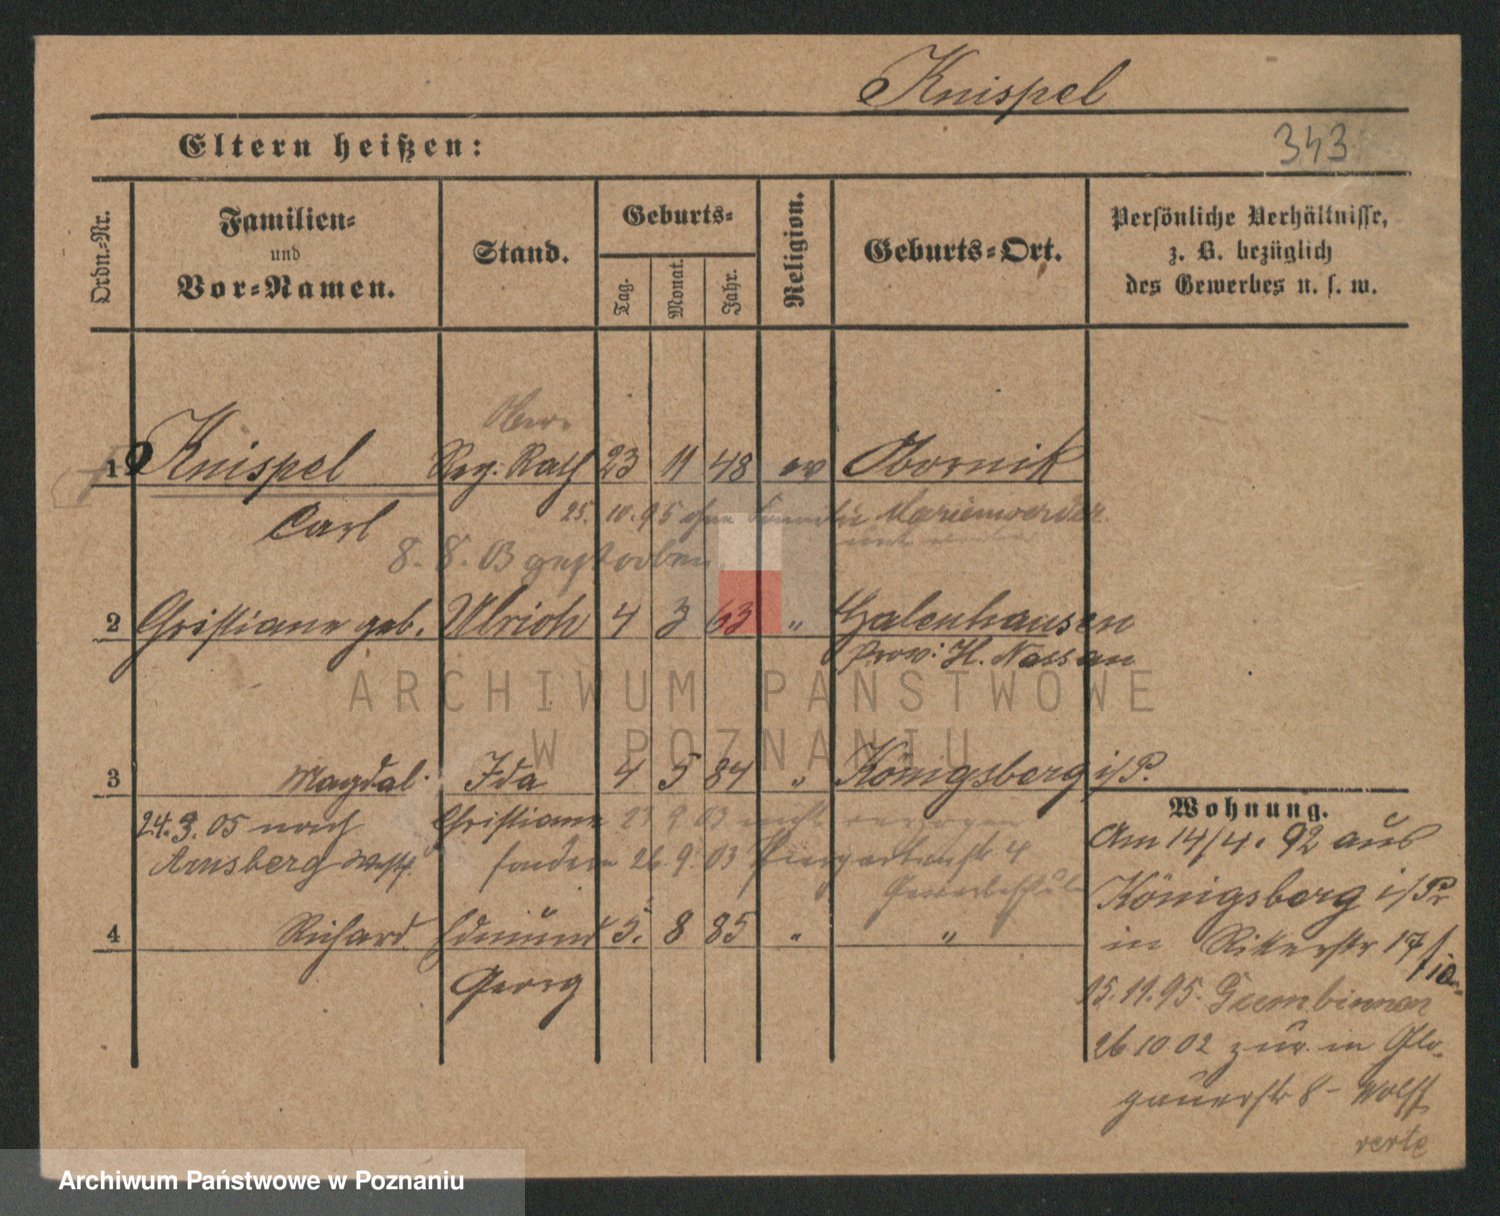 Knispel
343
Eltern heißen:
Ordn.-Nr.
Familien-
und
Vor-Namen.
Stand.
Geburts-
Tag.
Monat.
Jahr.
Religion.
Geburts-Ort.
Persönliche Verhältnisse,
z. B. bezüglich
des Gewerbes u. s. w.
Ober-
1 Knispel Reg. Rath 23 11 48 ev Obornik
Carl 25. 10. 95 ohne Familie Marienwerder
8. 8. 03 gestorben.
2 Christiane geb. Ulrich 4 3 63 " Halenhausen
Prov: H. Nassau
3 Magdal. Ida 4 5 84 " Königsberg i/P.
24. 3. 05 nach Christiane 23 9 03 nicht verzogen
Arnsberg Westf. sondern 26. 9. 03 Thiergartenstr 4
Gewerbeschule
4 Richard Edmund 5. 8 85 " "
Georg
Wohnung.
Am 14/4. 92 aus
Königsberg i/Pr
in Ritterstr 17
15. 11. 95. Gumbinnen
26 10 02 zur. in Glo-
gauerstr 8 - Wolff
verte
ARCHIWUM PAŃSTWOWE
W POZNANIU
Archiwum Państwowe w Poznaniu